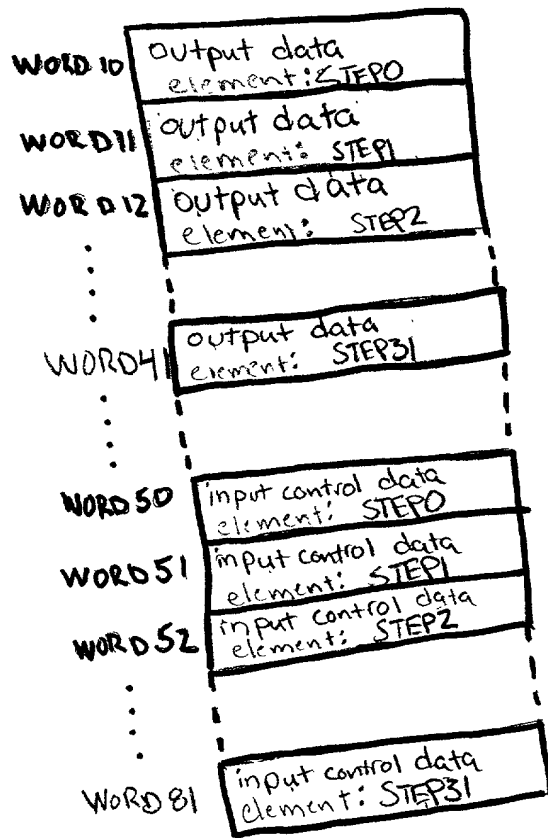 WORD 10 output data
element: STEP0
WORD 11 output data
element: STEP1
WORD 12 output data
element: STEP2
WORD 41 output data
element: STEP31
WORD 50 input control data
element: STEP0
WORD 51 input control data
element: STEP1
WORD 52 input control data
element: STEP2
WORD 81 input control data
element: STEP31